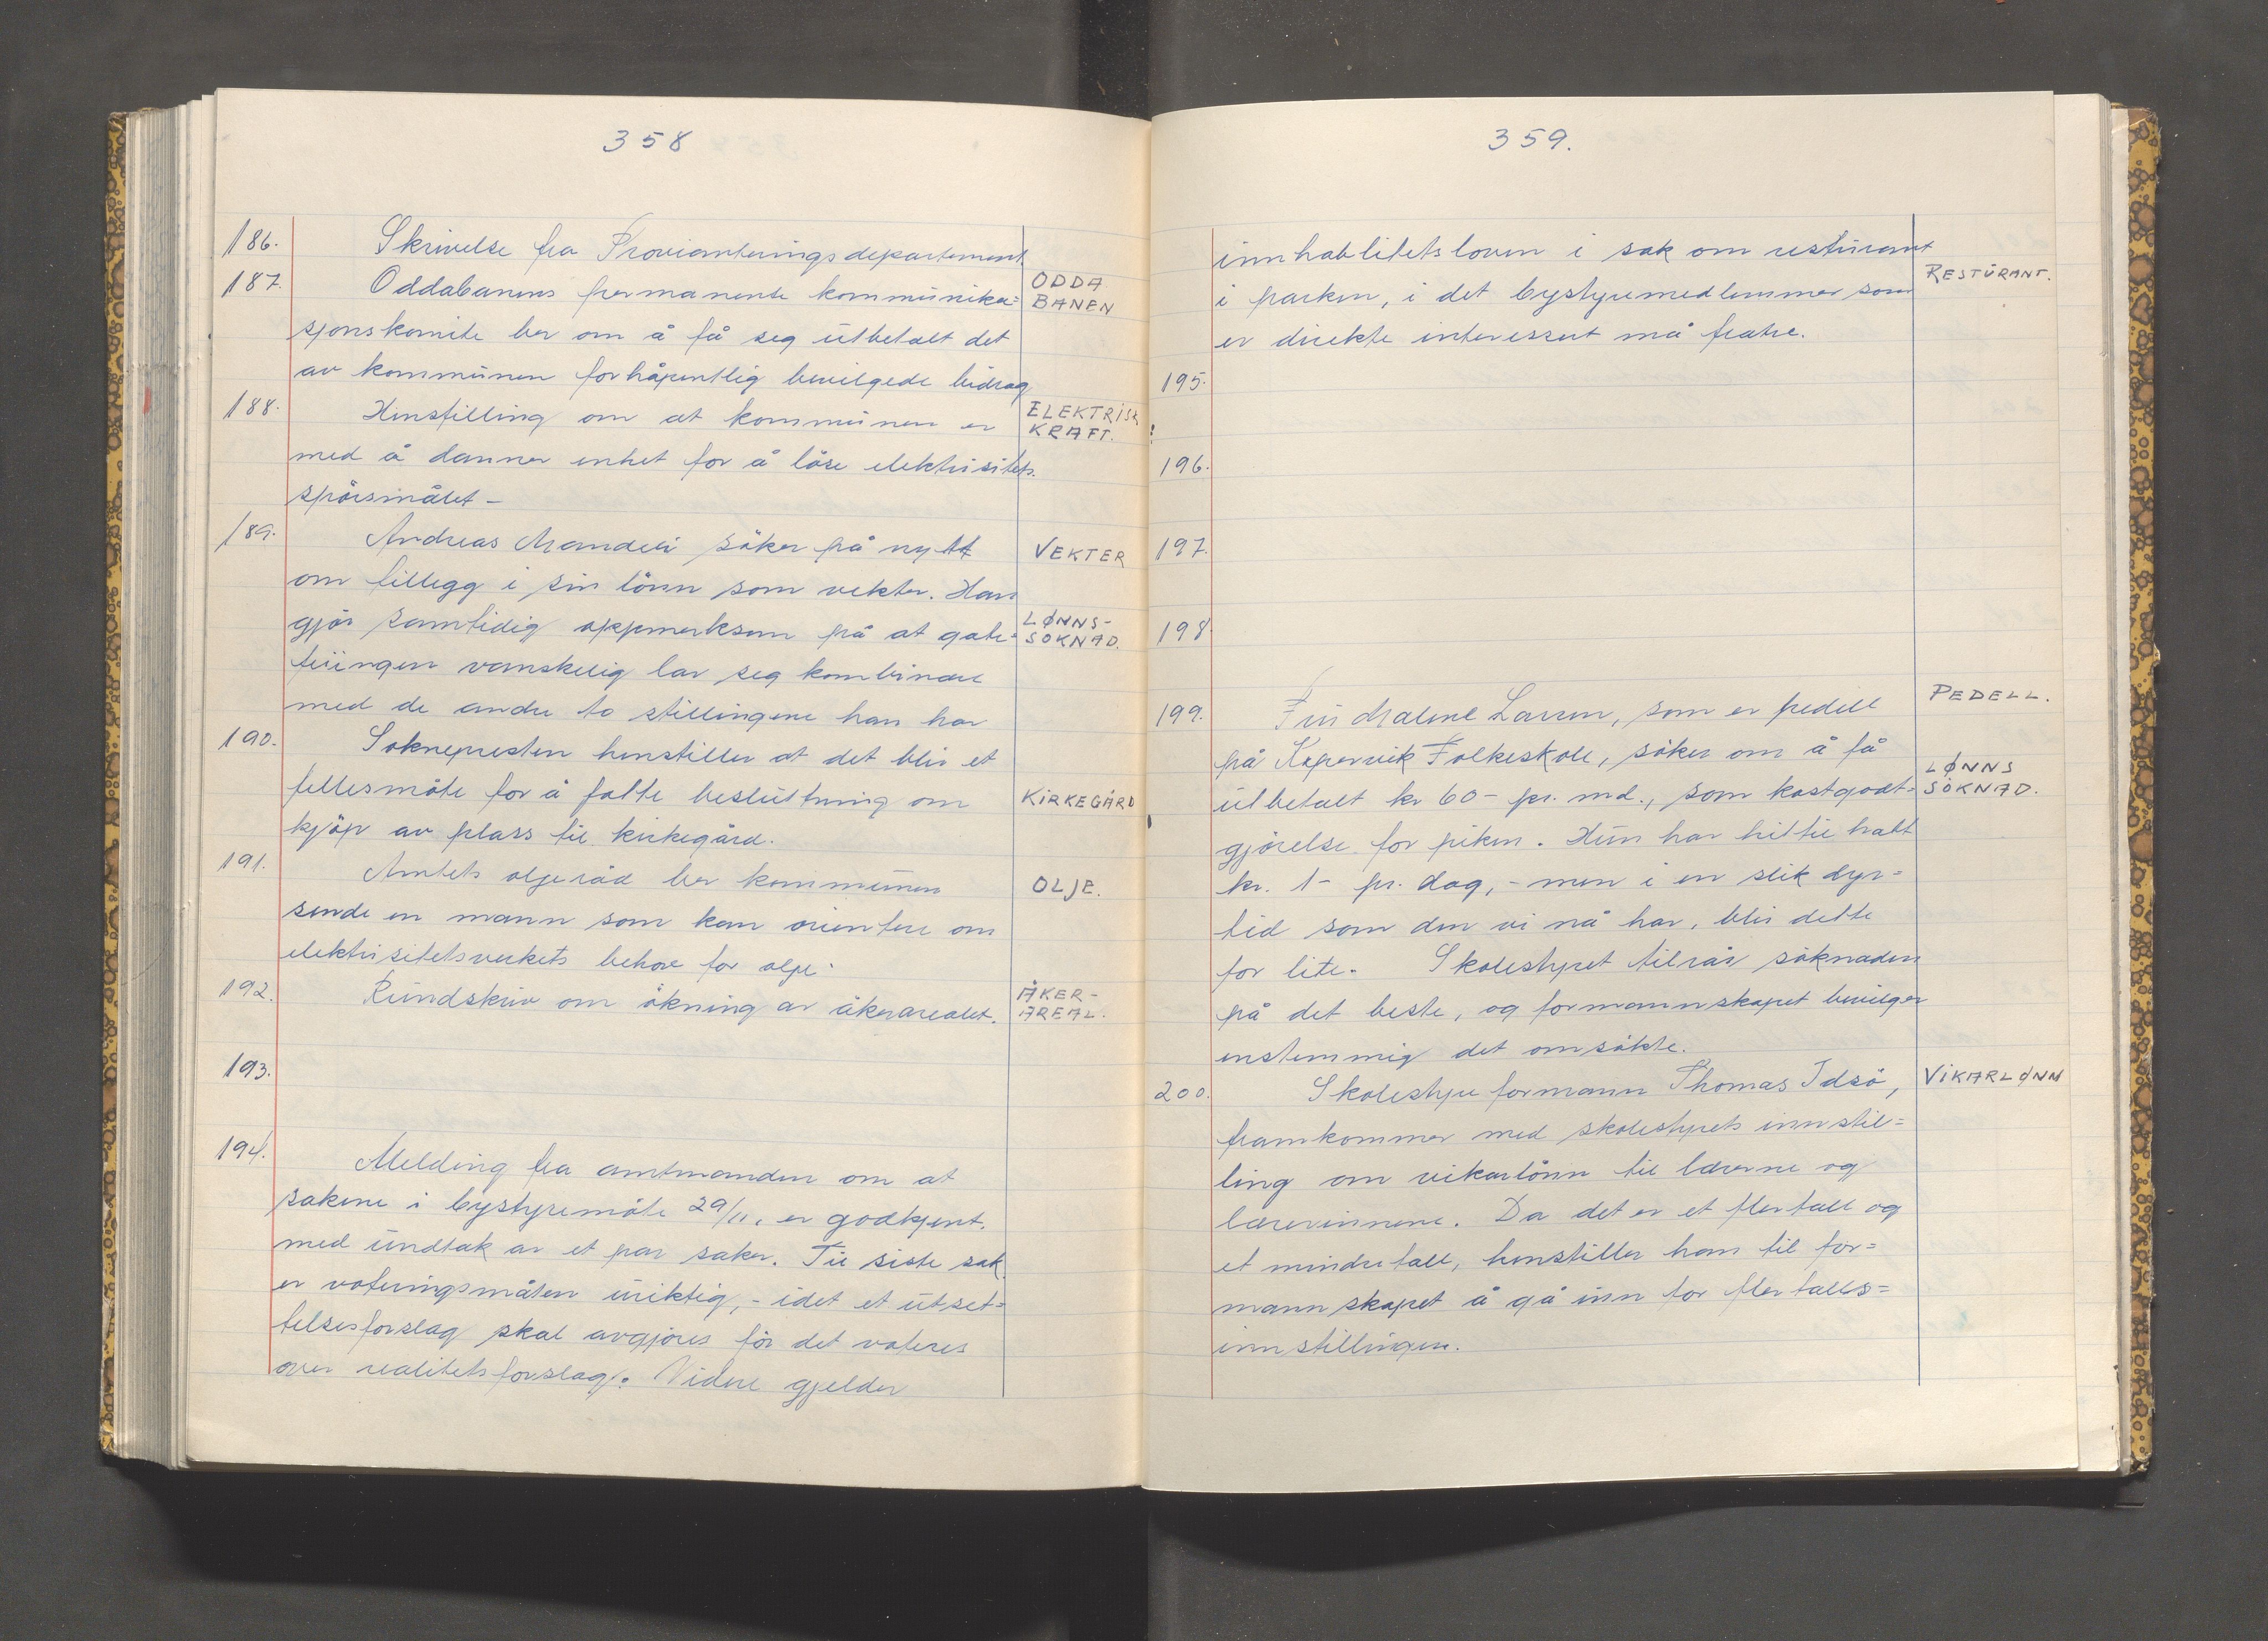 358
186. Skrivelse fra Provianteringsdepartement
187. Oddabanens permanente kommunika= ODDA BANEN
sjonskomite ber om å få seg utbetalt det
av kommunen forhåpentlig bevilgede bidrag
188. Hinstilling om at kommunen er ELEKTRISK KRAFT.
med å danner enhet for å löse elektrisitets.
spörsmålet -
189. Andreas söker på nytt VEKTER
om tillegg i sin lönn som vekter. Han
gjör samtidig oppmerksom på at gate= LØNNS-SÖKNAD.
feiingen vanskelig lar seg kombinere
med de andre to stillingene han har
190. Soknepresten henstiller at det blir et
fellesmöte for å fatte beslutning om KIRKEGÅRD
kjöp av plass til kirkegård.
191. Amtets oljeråd ber kommunen OLJE.
sende en mann som kan orientere om
elektrisitetsverkets behov for olje.
192. Rundskriv om ökning av åkerarealet. ÅKER-AREAL.
193.
194. Melding fra amtmanden om at
sakene i bystyremöte 29/11, er godkjent.
med undtak av et par saker. Til siste sak
er voteringsmåten uriktig, - idet et utset=
telsesforslag skal avgjöres för det voteres
over realitetsforslag. Videre gjelder
359.
innhablitetsloven i sak om resturant
i parken, i det bystyremedlemmer som RESTURANT.
er direkte interessert må fratre.
195.
196.
197.
198
199. Fru Malene Larsen, som er pedell PEDELL.
på Kopervik Folkeskole, söker om å få
utbetalt kr 60- pr. md., som kostgodt= LØNNS SÖKNAD.
gjörelse for piken. Hun har hittil hatt
kr. 1- pr. dag, - men i en slik dyr=
tid som den vi nå har, blir dette
for lite. Skolestyret tilrår söknaden
på det beste, og formannskapet bevilger
enstemmig det omsökte.
200. Skolestyreformann Thomas Idsö, VIKARLØNN
framkommer med skolestyrets innstil=
ling om vikarlönn til lærerne og
lærerinnene. Da det er et flertall og
et mindretall, henstiller han til for=
mannskapet å gå inn for flertalls=
innstillingen.